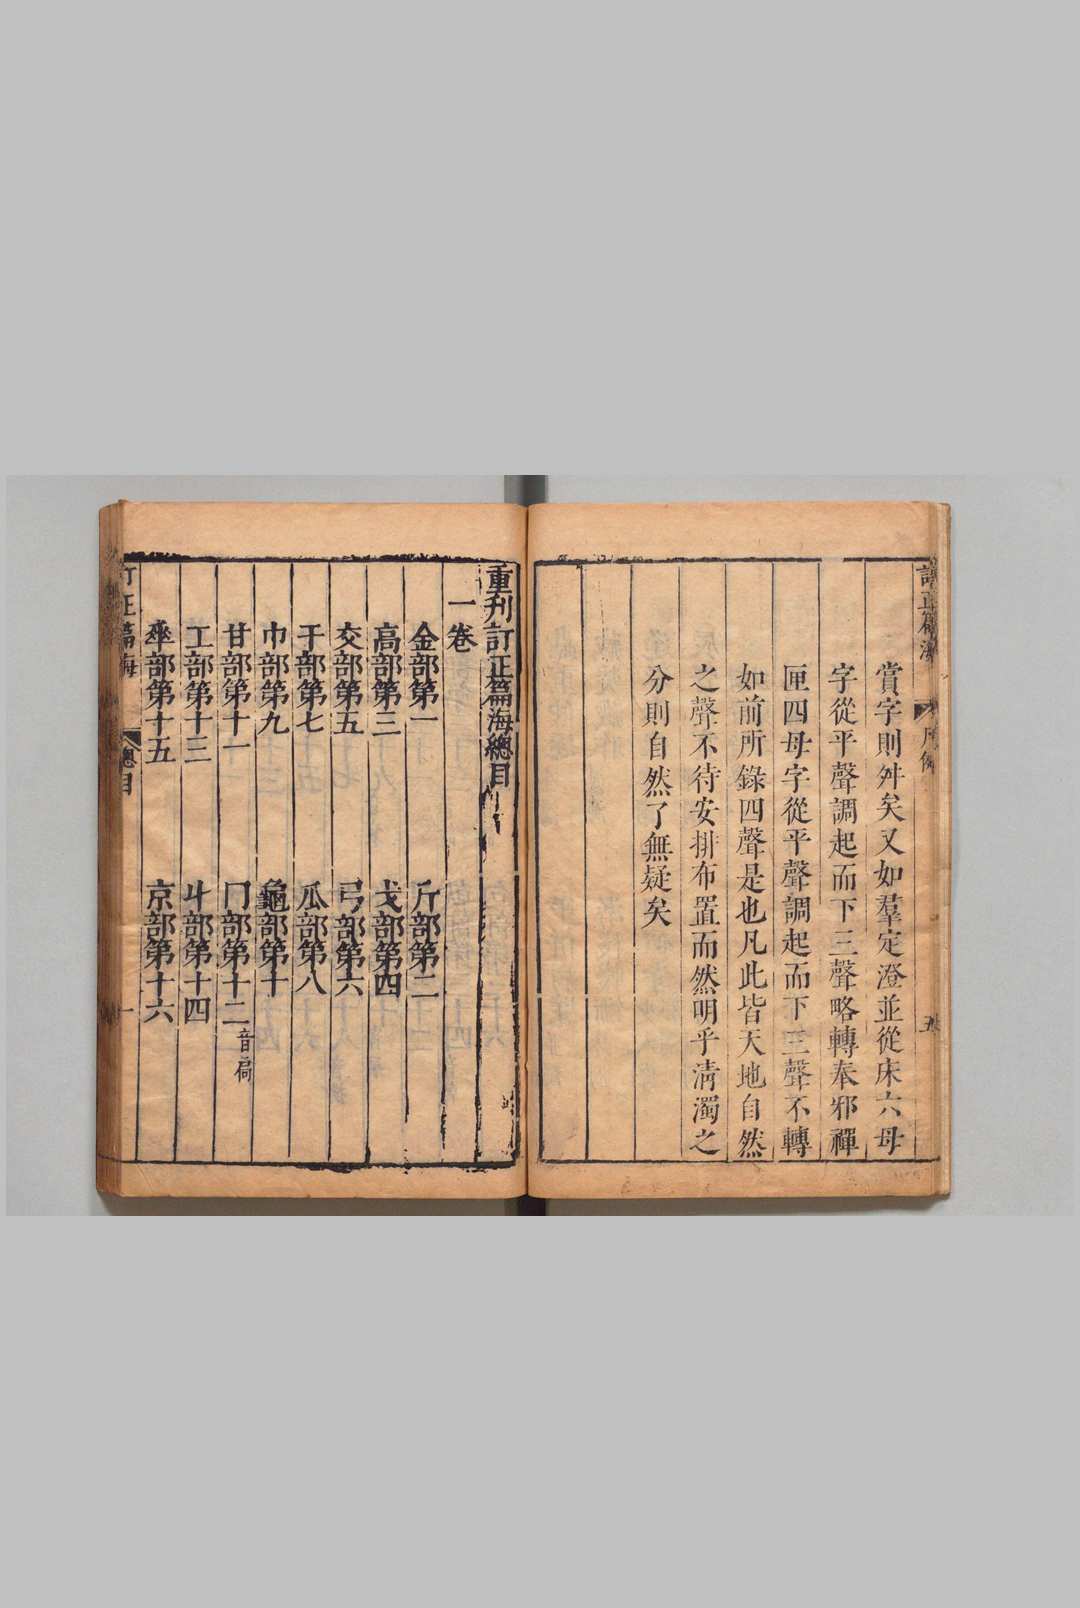 賞字則舛矣又如羣定澄並從床六母
字從平聲調起而下三聲略轉奉邪禪
匣四母字從平聲調起而下三聲不轉
如前所錄四聲是也凡此皆天地自然
之聲不待安排布置而然明乎淸濁之
分則自然了無疑矣
重刊訂正篇海總目
一卷
金部第一 斤部第二
高部第三 戈部第四
交部第五 弓部第六
干部第七 瓜部第八
巾部第九 龜部第十
甘部第十一 冂部第十二音扃
工部第十三 斗部第十四
部第十五 京部第十六
訂正篇海 總目 一